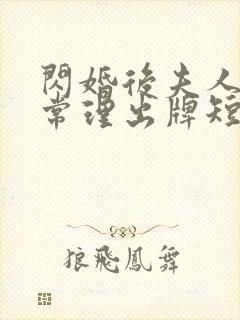 閃婚後夫人
常理出牌短
狼飛鳳舞